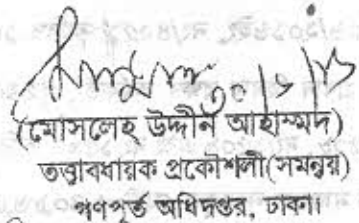 ৩০/৮/১৬
(মোসলেহ উদ্দীন আহাম্মদ)
তত্ত্বাবধায়ক প্রকৌশলী(সমন্বয়)
গণপূর্ত অধিদপ্তর, ঢাকা।